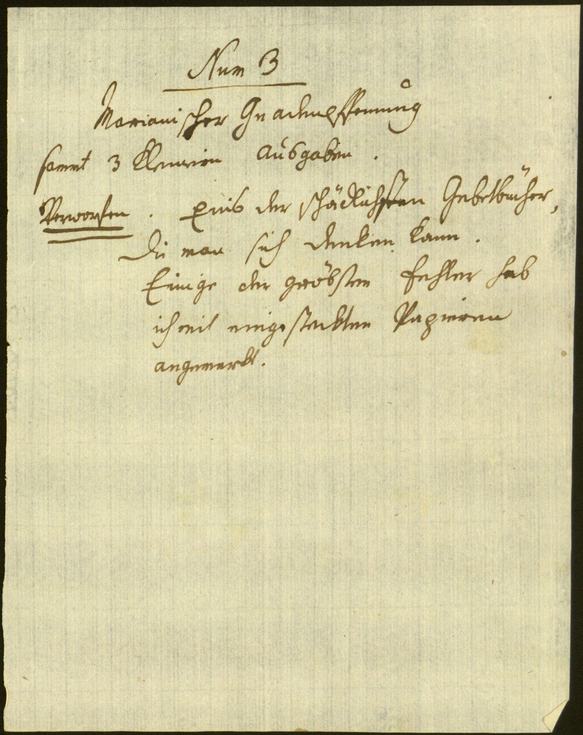 Num 3
Marianischer Gnadenpffenning
sammt 3 kleinern Ausgaben.
Verworfen. Eins der schädlichsten Gebetbücher,
die man sich denken kann.
Einige der gröbsten Fehler hab
ich mit eingesteckten Papieren
angemerkt.